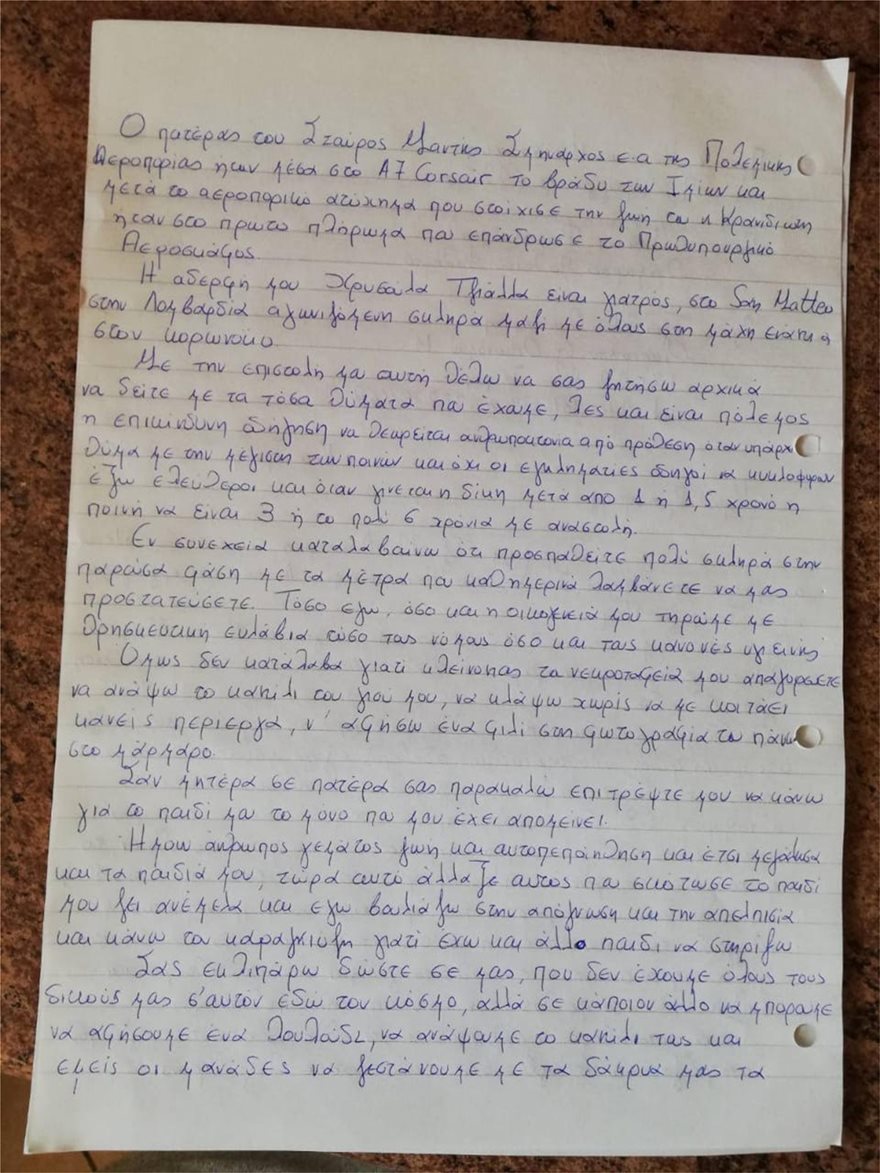 Ο πατέρας του Σταύρος Μαντης Σμηναρχος ε.α της Πολεμικης
Αεροποριας ηταν μέσα στο Α7 Corsair το βράδυ των Ιμιων και
μετά το αεροπορικό ατύχημα που στοίχισε την ζωή του κ Κρανιδιωτη
ήταν στο πρωτο πλήρωμα που επάνδρωσε το Πρωθυπουργικό
Αεροσκάφος.
Η αδερφη μου Χρυσούλα Τζιάλλα είναι γιατρός, στο San Matteo
στην Λομβαρδία αγωνιζόμενη σκληρά μαζι με όλους στη μάχη ενάντια
στον κορωνοιο.
Με την επιστολη μου αυτή θέλω να σας ζητησω αρχικά
να δείτε με τα τόσα θύματα που έχουμε, λες και είναι πόλεμος
η επικίνδυνη οδήγηση να θεωρείται ανθρωποκτονια από πρόθεση όταν υπάρχει
θύμα με την μεγιστη των ποινών και όχι οι εγκληματίες οδηγοί να κυκλοφορουν
έξω ελεύθεροι και όταν γινεται η δίκη μετά απο 1 ή 1,5 χρονο η
ποινή να είναι 3 ή το πολύ 5 χρόνια με αναστολη.
Εν συνεχεία καταλαβαίνω ότι προσπαθείτε πολύ σκληρά στην
παρούσα φάση με τα μέτρα που καθημερινά λαμβάνετε να μας
προστατεύσετε. Τόσο εγω, όσο και η οικογένειά μου τηρούμε με
θρησκευτικη ευλάβια τόσο τους νόμους όσο και τους κανονές υγιεινής
Ομως δεν κατάλαβα γιατί κλείνοντας τα νεκροταφεία μου απαγορεύετε
να ανάψω το καντήλι του γιου μου, να κλάψω χωρίς να με κοιτάει
κανείς περιεργα, ν' αφήσω ένα φιλί στη φωτογραφία του πάνω
στο μάρμαρο.
Σαν μητέρα σε πατέρα σας παρακαλώ επιτρέψτε μου να κάνω
για το παιδί μου το μόνο που μου έχει απομείνει.
Ήμουν άνθρωπος γεμάτος ζωη και αυτοπεποίθηση και έτσι μεγάλωσα
και τα παιδιά μου, τώρα αυτό άλλαξε αυτος που σκότωσε το παιδί
μου ζει ανέμελα και εγω βουλιάζω στην απόγνωση και την απελπισία
και κάνω τον καραγκιόζη γιατί έχω και άλλο παιδι να στηρίξω
Σας εκλιπάρω δώστε σε μας, που δεν έχουμε όλους τους
δικούς μας σ'αυτόν εδώ τον κόσμο, αλλά σε κάποιον άλλο να μπορουμε
να αφήσουμε ένα λουλούδι, να ανάψουμε το καντήλι τους και
εμείς οι μανάδες να ζεστάνουμε με τα δάκρυα μας τα